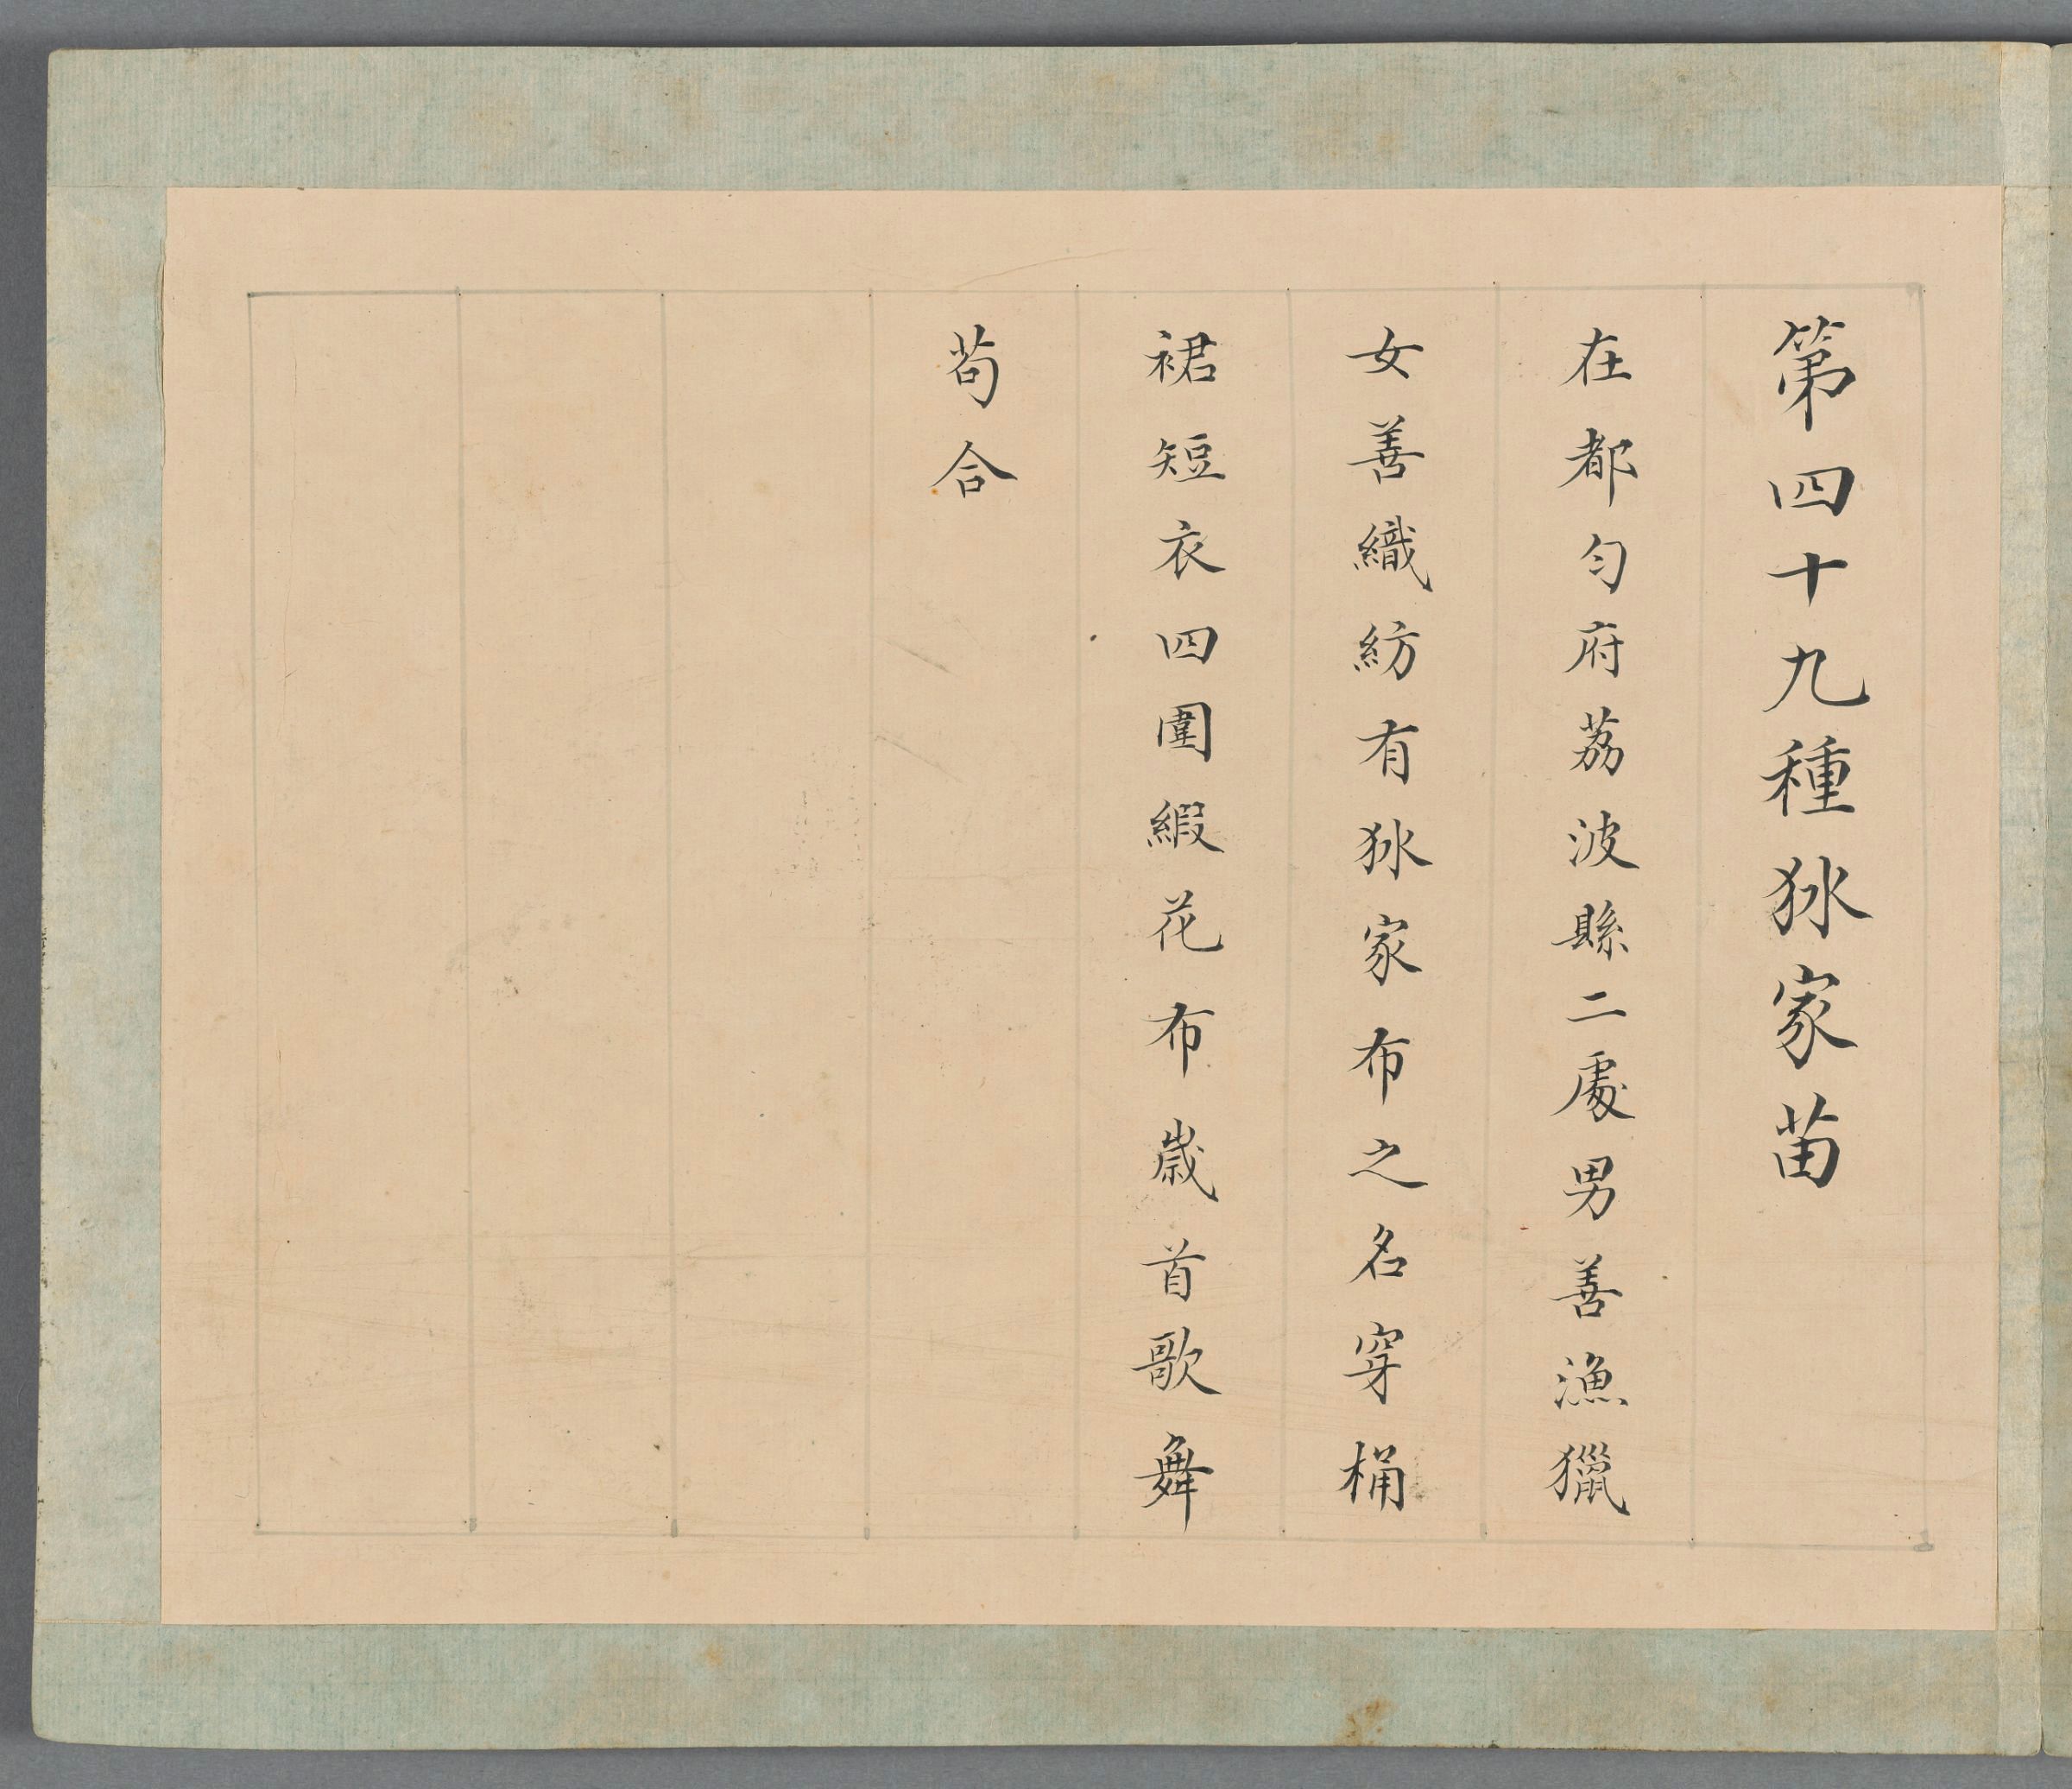 第四十九種狇家苗
在都匀府荔波縣二處男善漁獵
女善織紡有狇家布之名穿桶
裙短衣四圍緞花布歲首歌舞
苟合